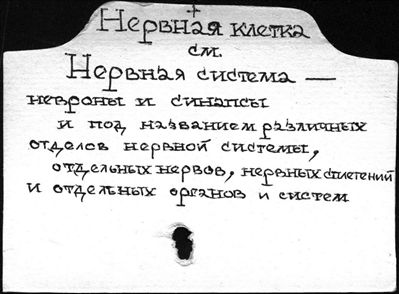 +
Нервная клетка
см.
Нервная система —
невроны и синапсы
и под названием различных
отделов нервной системы,
отдельных нервов, нервных сплетений
и отдельных органов и систем